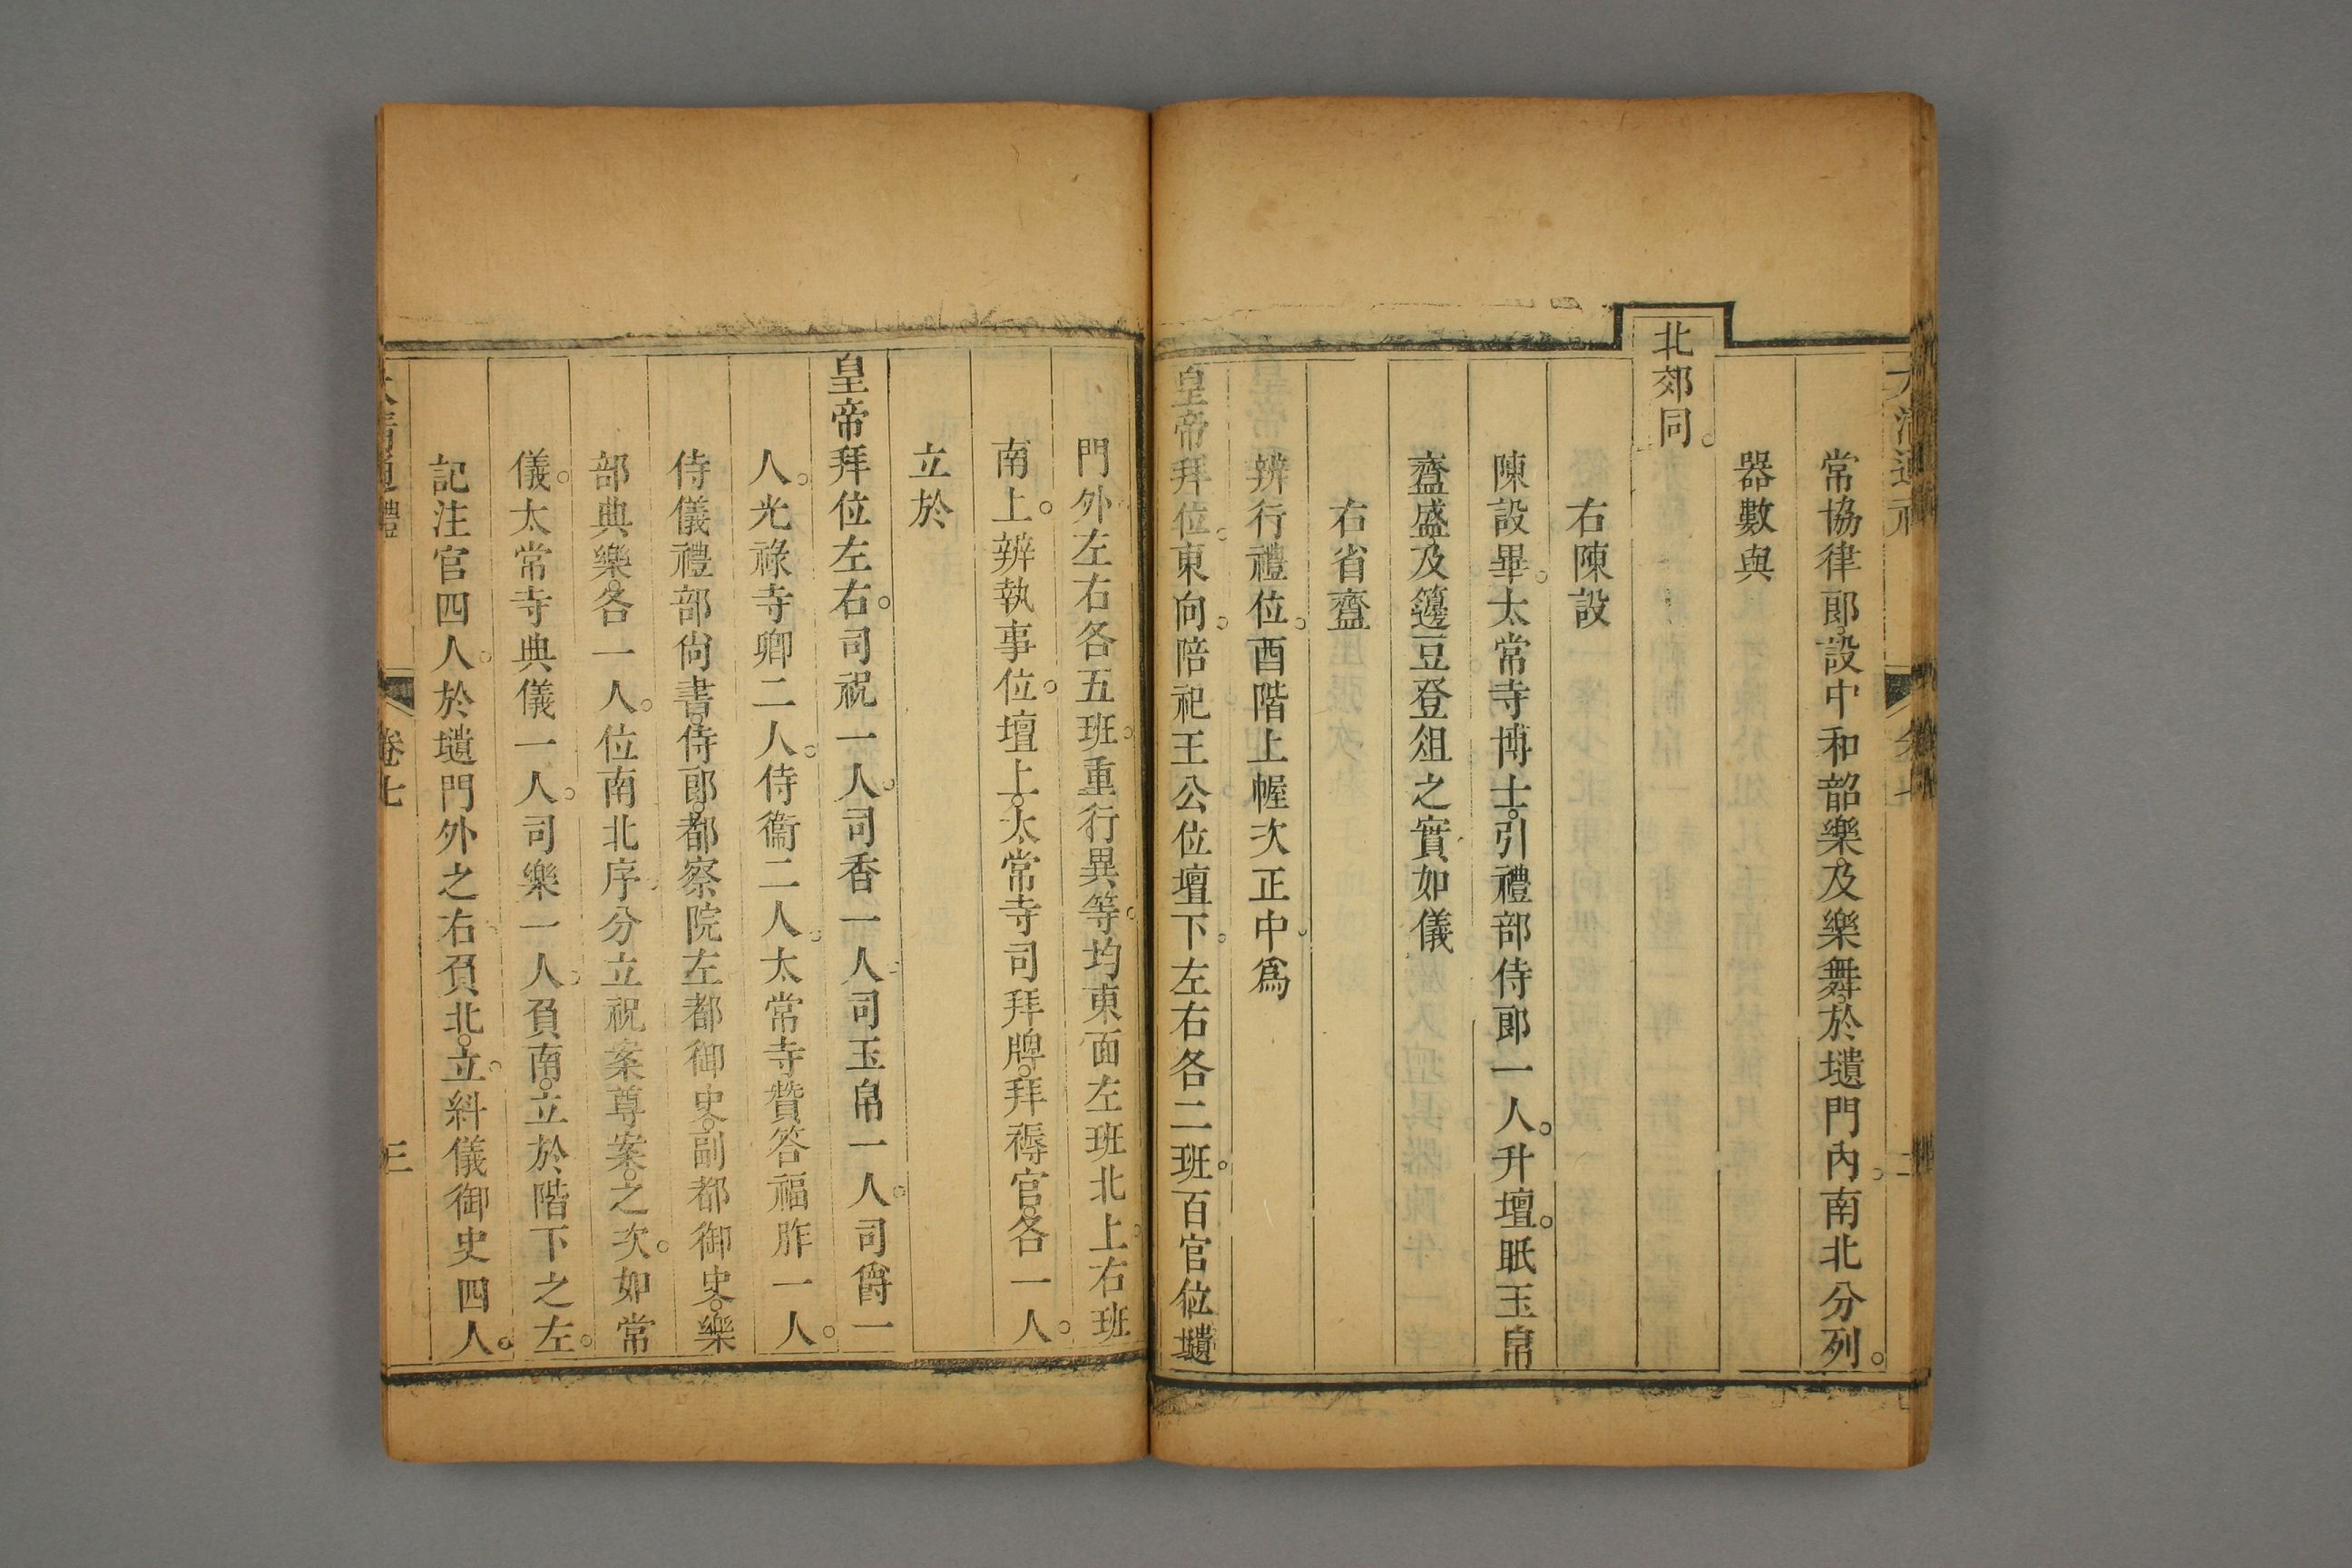 大清通禮 卷七 二
常協律郎。設中和韶樂。及樂舞。於壝門內。南北分列。
器數與
北郊同。
右陳設
陳設畢。太常寺博士。引禮部侍郎一人。升壇。眡玉帛
齍盛。及籩豆登俎之實。如儀
右省齍
辨行禮位。酉階上幄次正中。爲
皇帝拜位。東向。陪祀王公位壇下。左右各二班。百官位壝
門外。左右各五班。重行異等。均東面。左班北上。右班
南上。辨執事位。壇上。太常寺司拜牌。拜褥官。各一人。
立於
皇帝拜位左右。司祝一人。司香一人。司玉帛一人。司爵一
人。光祿寺卿二人。侍衞二人。太常寺贊答福胙一人。
侍儀禮部尙書。侍郎。都察院左都御史。副都御史。樂
部典樂。各一人。位南北序。分立祝案尊案。之次。如常
儀。太常寺典儀一人。司樂一人。負南。立於階下之左。
記注官四人。於壝門外之右。負北。立。糾儀御史四人。
大清通禮 卷七 三